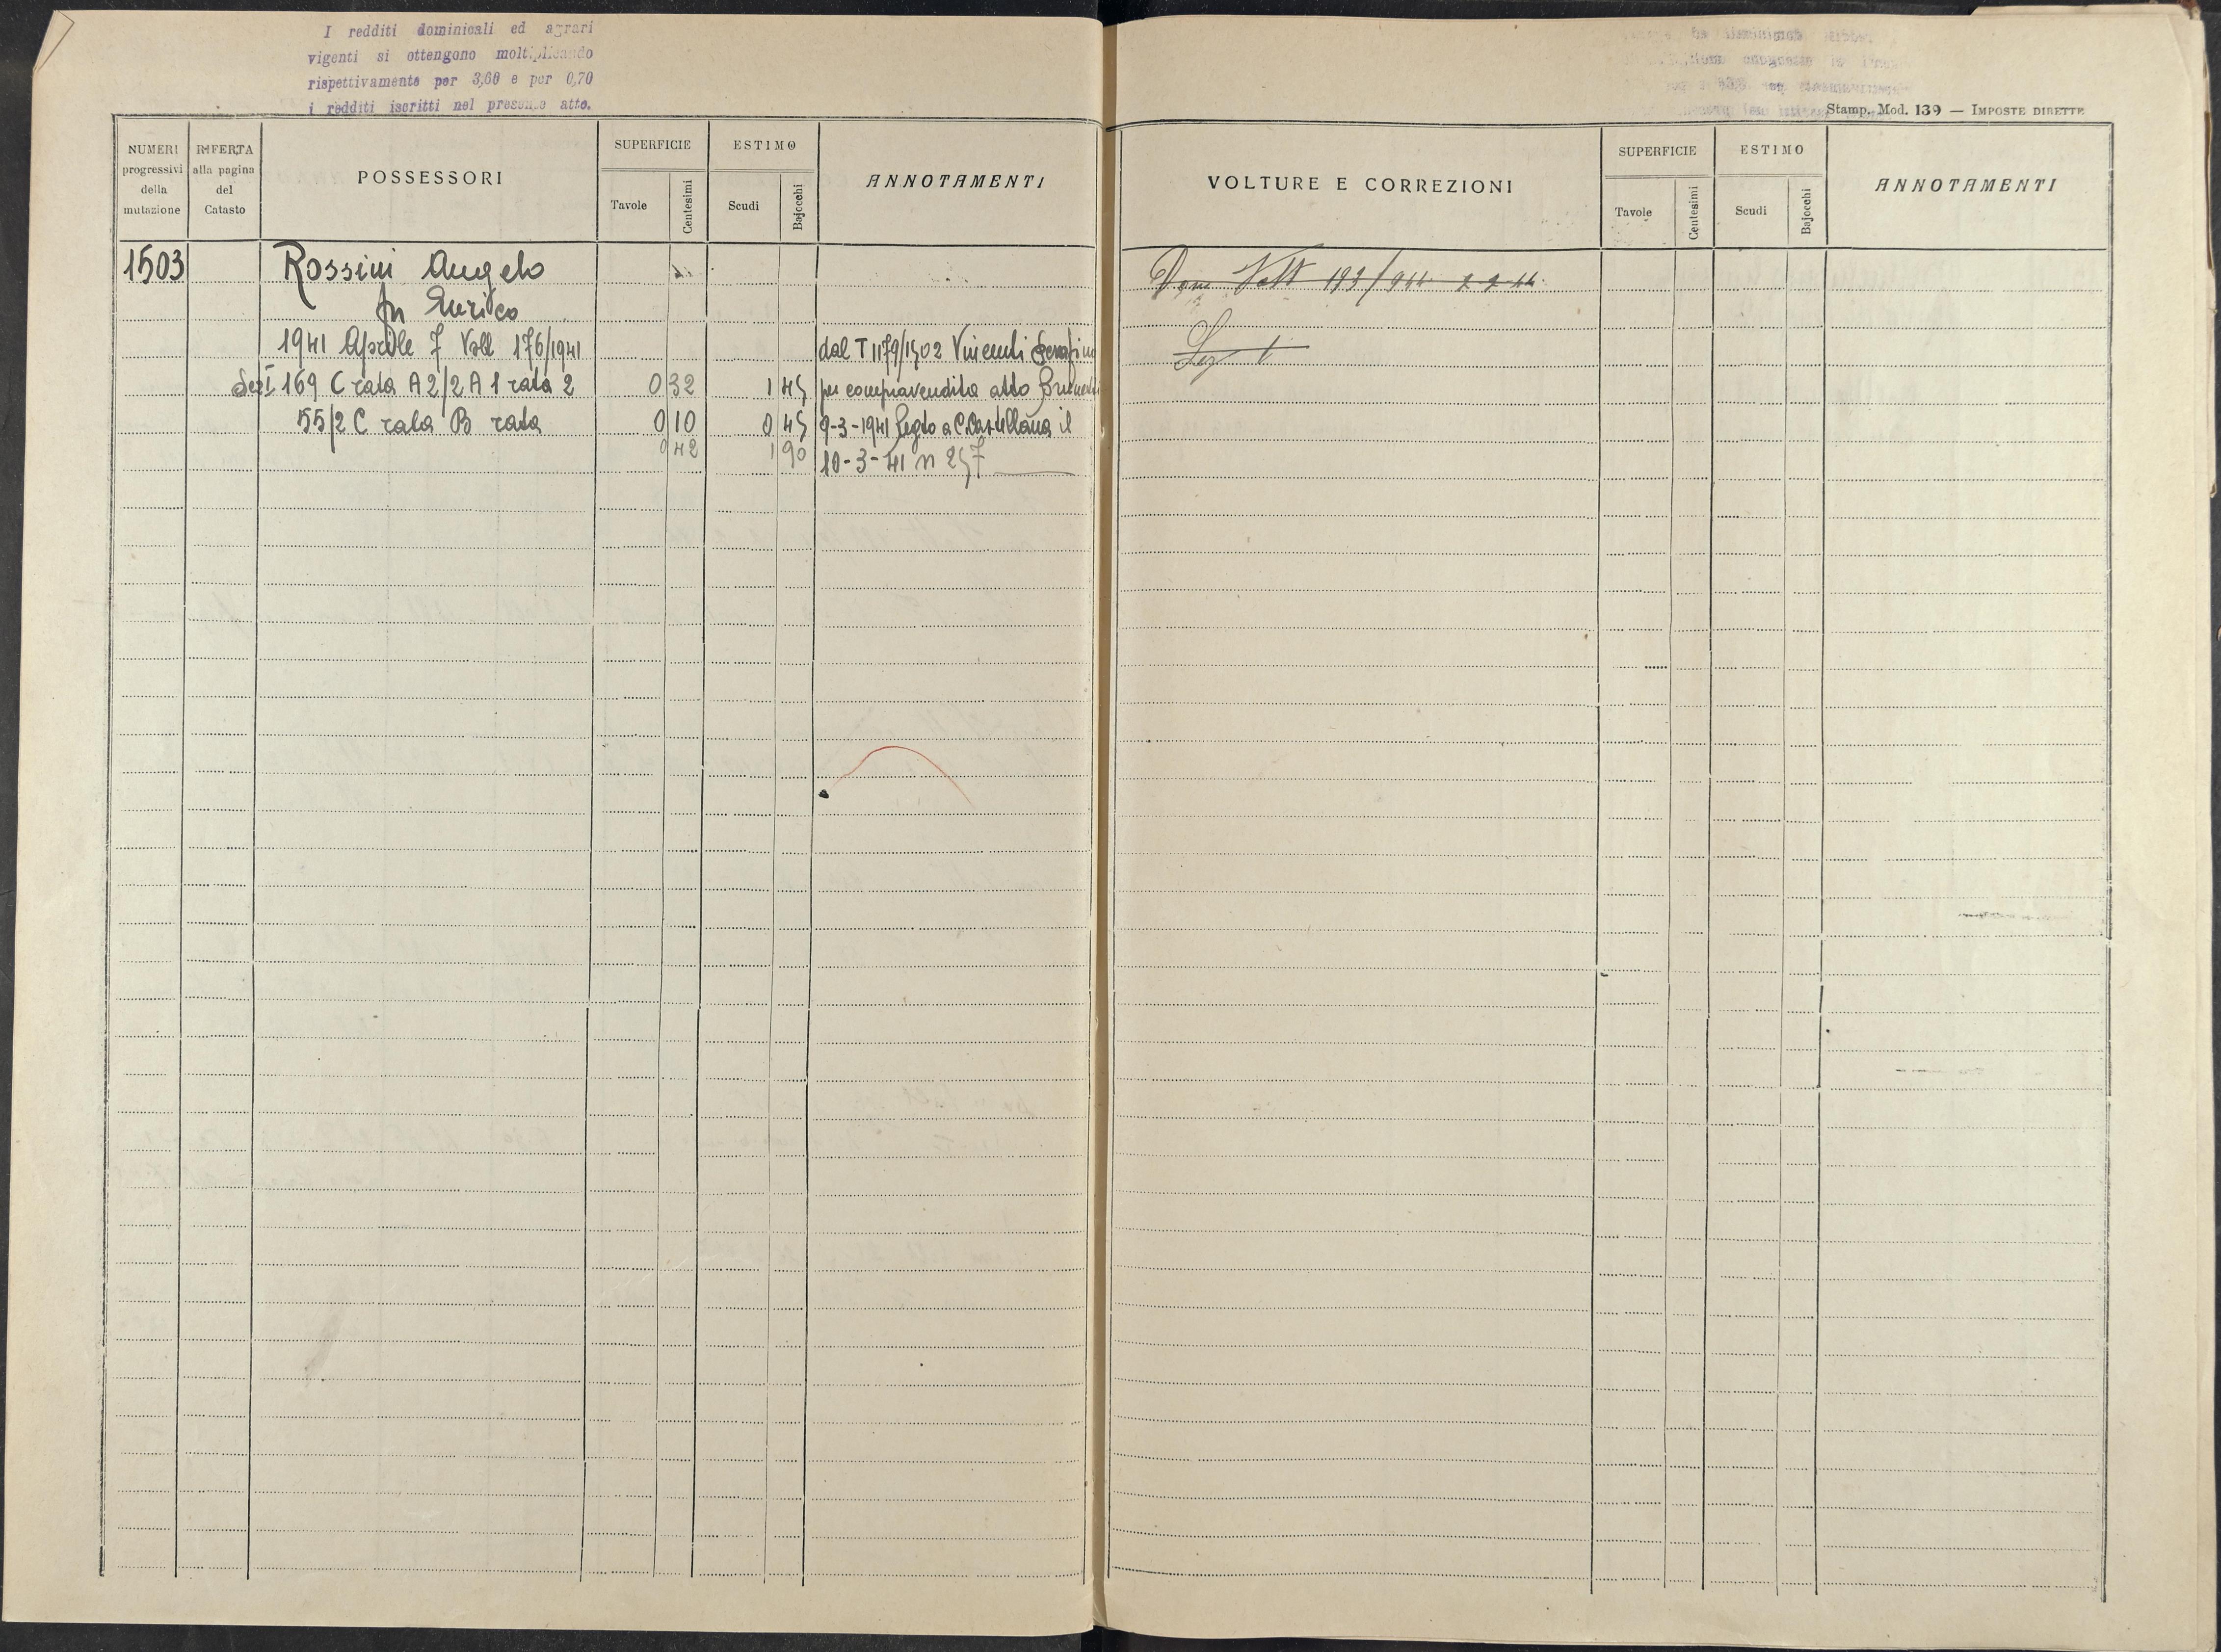 I redditi dominicali ed agrari
vigenti si ottengono moltiplicando
rispettivamente per 3,60 e per 0,70
i redditi iscritti nel presente atto.
NUMERI progressivi della mutazione
RIFERTA alla pagina del Catasto
POSSESSORI
SUPERFICIE
Tavole
Centesimi
ESTIMO
Scudi
Bajocchi
ANNOTAMENTI
1503 Rossini Angelo
fu Enrico
1941 Aprile 7 Volt 176/1941 dal T 1179/1502 Vincenti Serafino
Sez I 169 C rata A 2/2 A 1 rata 2 0 32 1 45 per compravendita atto
55/2 C rata B rata 0 10 0 45 9-3-1941 Regto a C. Castellana il
0 42 1 90 10-3-41 n 257
Stamp. Mod. 139 — IMPOSTE DIRETTE
VOLTURE E CORREZIONI
SUPERFICIE
Tavole
Centesimi
ESTIMO
Scudi
Bajocchi
ANNOTAMENTI
Dom Volt 193/944 2-2-44